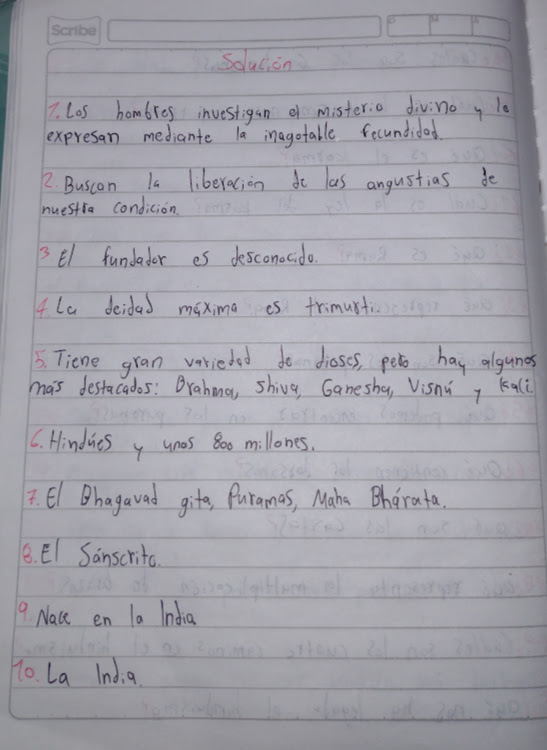 Scribe
Solución
1. Los hombres investigan el misterio divino y lo
expresan mediante la inagotable fecundidad.
2. Buscan la liberación de las angustias de
nuestra condición.
3 El fundador es desconocido.
4 La deidad máxima es trimurti.
5. Tiene gran variedad de dioses, pero hay algunos
más destacados: Brahma, Shiva, Ganesha, Visnú y Kali.
6. Hindúes y unos 800 millones.
7. El Bhagavad gita, Puramas, Maha Bhárata.
8. El Sánscrito.
9. Nace en la India
10. La India.